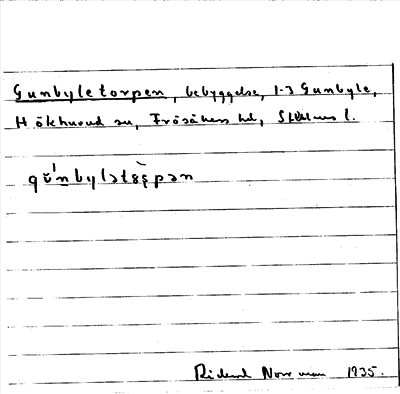 Gunbyletorpen, bebyggelse, 1-3 Gunbyle,
Hökhuvud sn, Frösåkers hd, Sthlms l.
gu̇́nbylətɞ̀rpən
Rickard Norrman 1935.